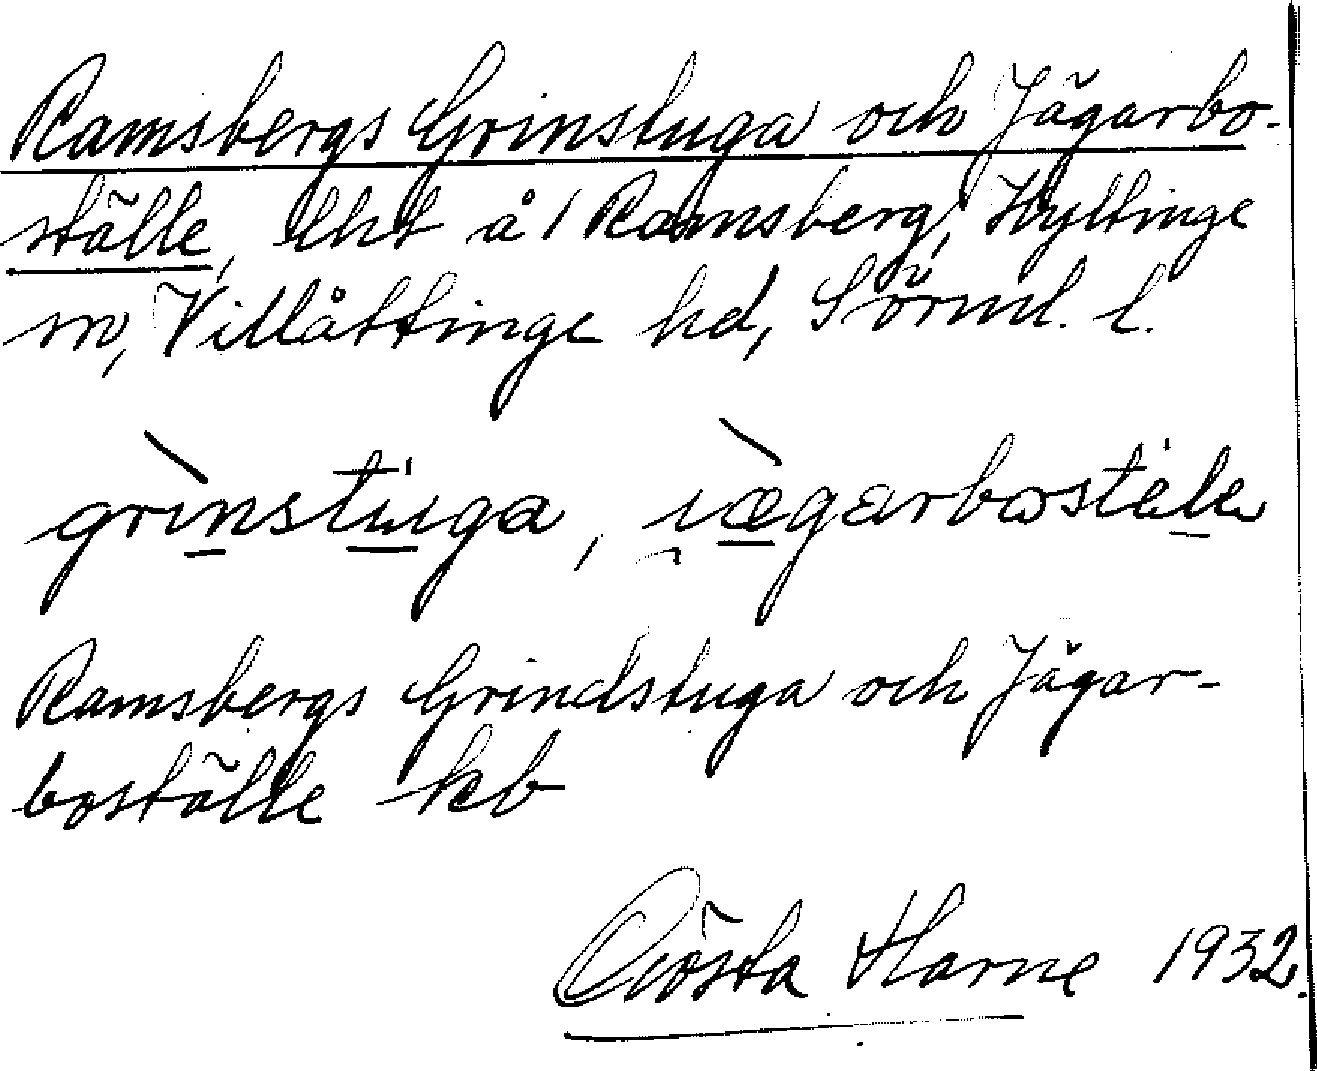 Ramsbergs Grinstuga och Jägarbo-
ställe, lht å 1 Ramsberg, Hyltinge
sn, Villåttinge hd, Sörml. l.
grinstuga, jægarbostäle
Ramsbergs Grindstuga och Jägar-
boställe kb
Gösta Harne 1932.